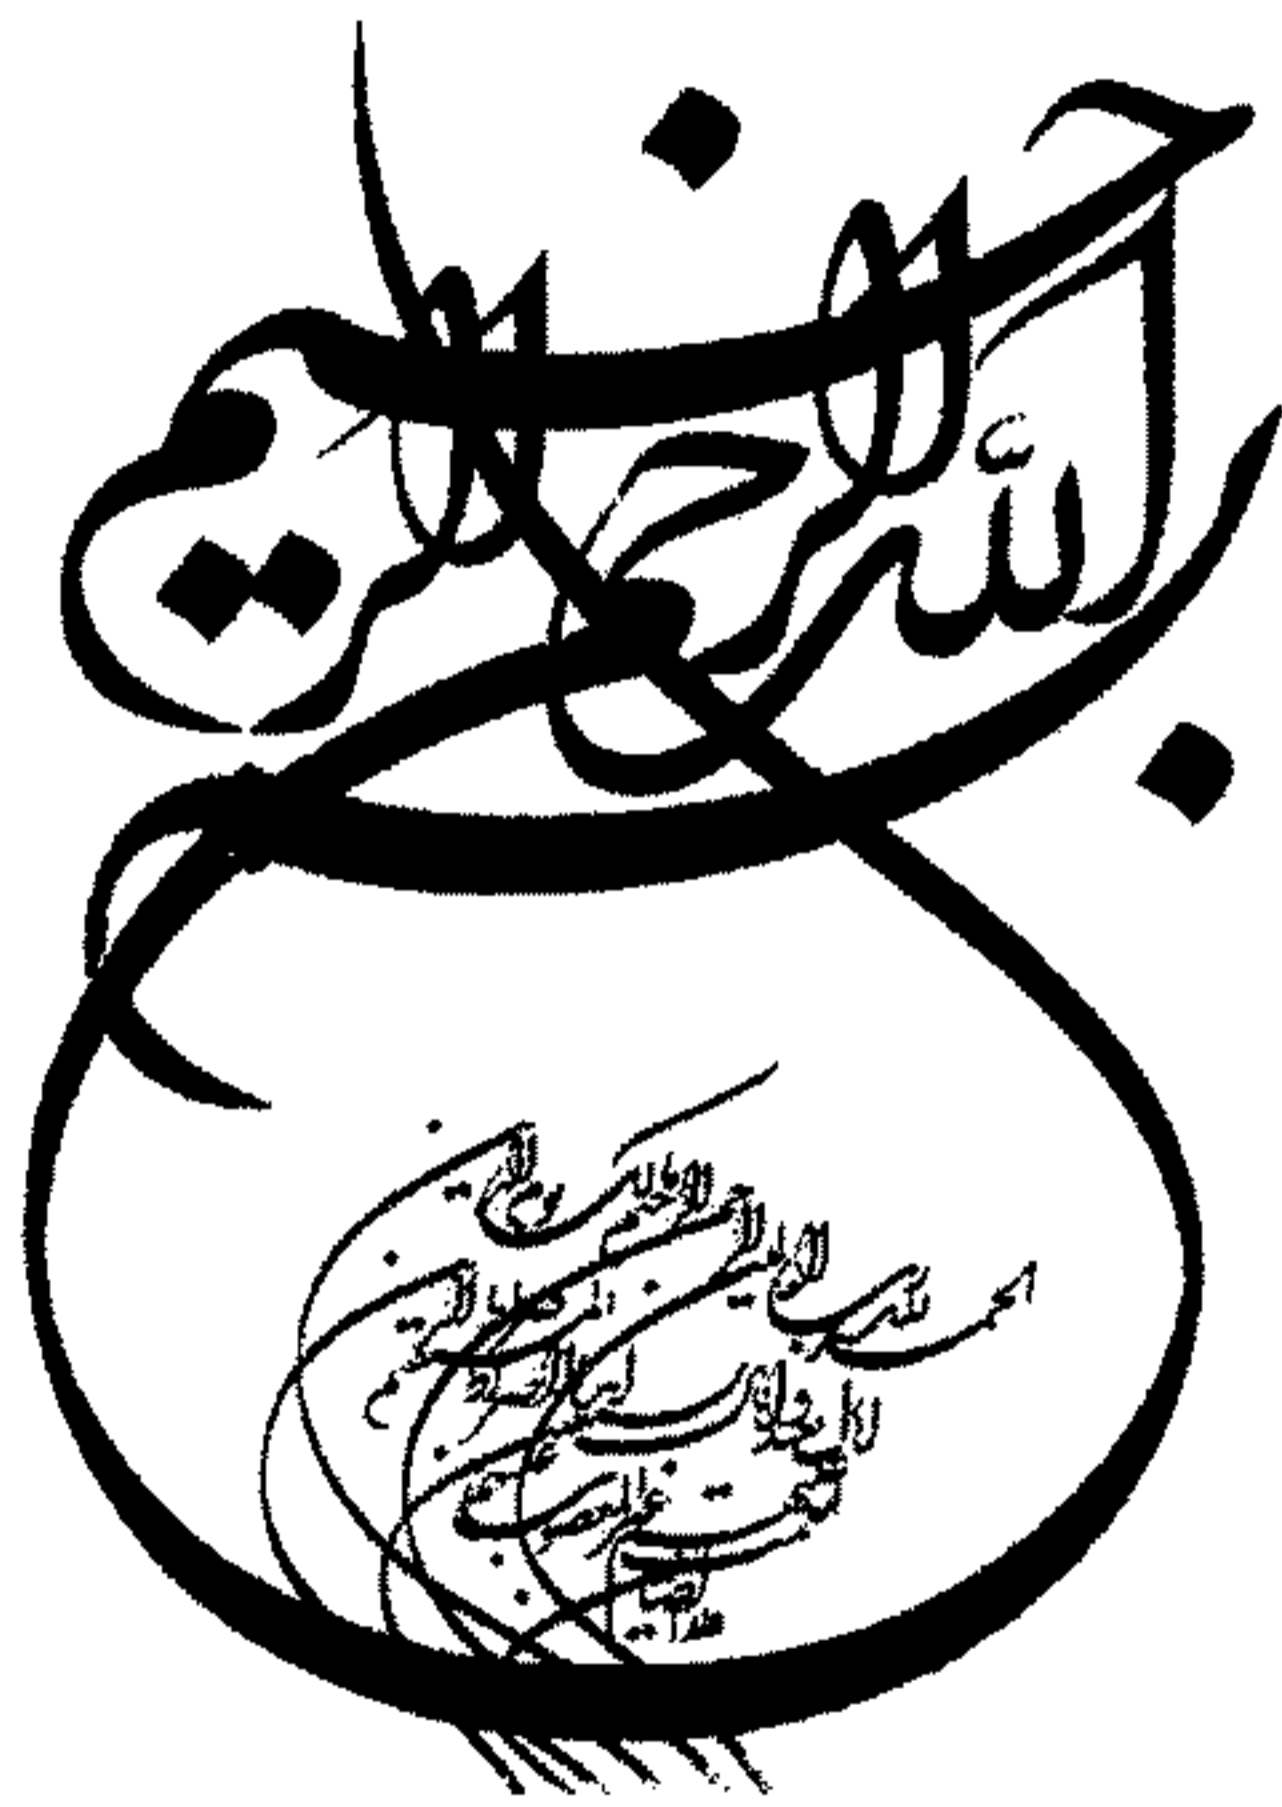 بسم الله الرحمن الرحيم
الحمد لله رب العالمين
الرحمن الرحيم
مالك يوم الدين
إياك نعبد وإياك نستعين
اهدنا الصراط المستقيم
صراط الذين أنعمت عليهم
غير المغضوب عليهم